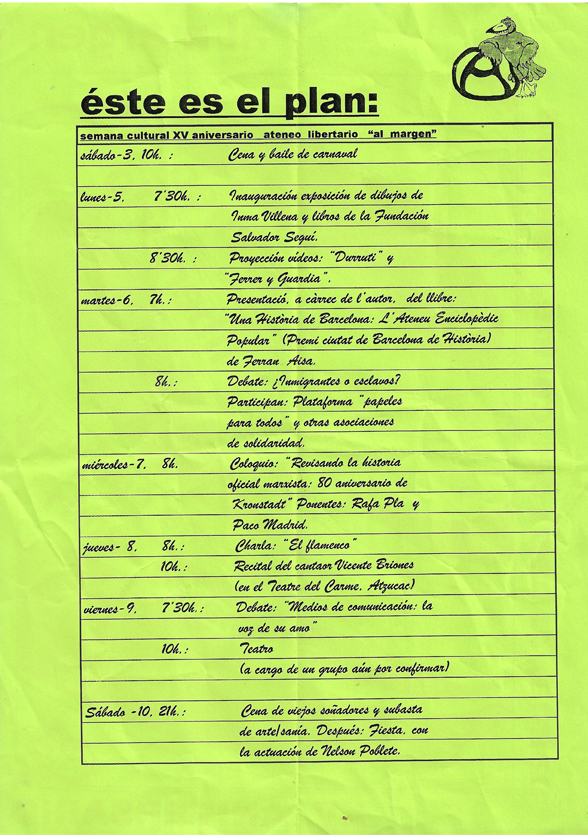 éste es el plan:
semana cultural XV aniversario ateneo libertario “al margen”
sábado-3, 10h. : Cena y baile de carnaval
lunes-5, 7'30h. : Inauguración exposición de dibujos de
Inma Villena y libros de la Fundación
Salvador Seguí.
8'30h. : Proyección vídeos: “Durruti” y
“Ferrer y Guardia”.
martes-6, 7h. : Presentació, a càrrec de l'autor, del llibre:
“Una Història de Barcelona: L'Ateneu Enciclopèdic
Popular” (Premi ciutat de Barcelona de Història)
de Ferran Aisa.
8h. : Debate: ¿Inmigrantes o esclavos?
Participan: Plataforma “papeles
para todos” y otras asociaciones
de solidaridad.
miércoles-7, 8h. Coloquio: “Revisando la historia
oficial marxista: 80 aniversario de
Kronstadt” Ponentes: Rafa Pla y
Paco Madrid.
jueves- 8, 8h. : Charla: “El flamenco”
10h. : Recital del cantaor Vicente Briones
(en el Teatre del Carme, Atzucac)
viernes-9, 7'30h. : Debate: “Medios de comunicación: la
voz de su amo”
10h. : Teatro
(a cargo de un grupo aún por confirmar)
Sábado -10, 21h. : Cena de viejos soñadores y subasta
de arte/sanía. Después: Fiesta, con
la actuación de Nelson Poblete.